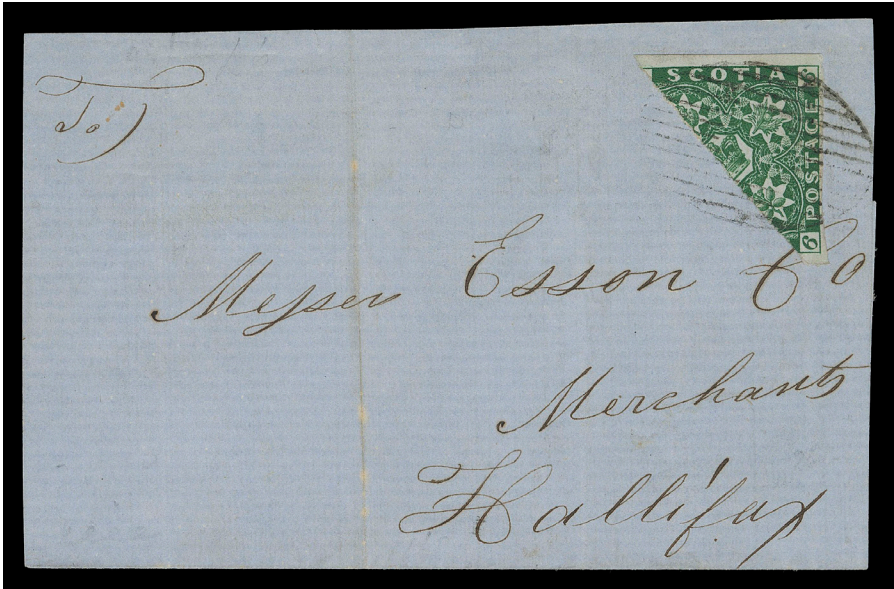 To
SCOTIA
6
POSTAGE
6
Messrs Esson Co
Merchants
Hallifax